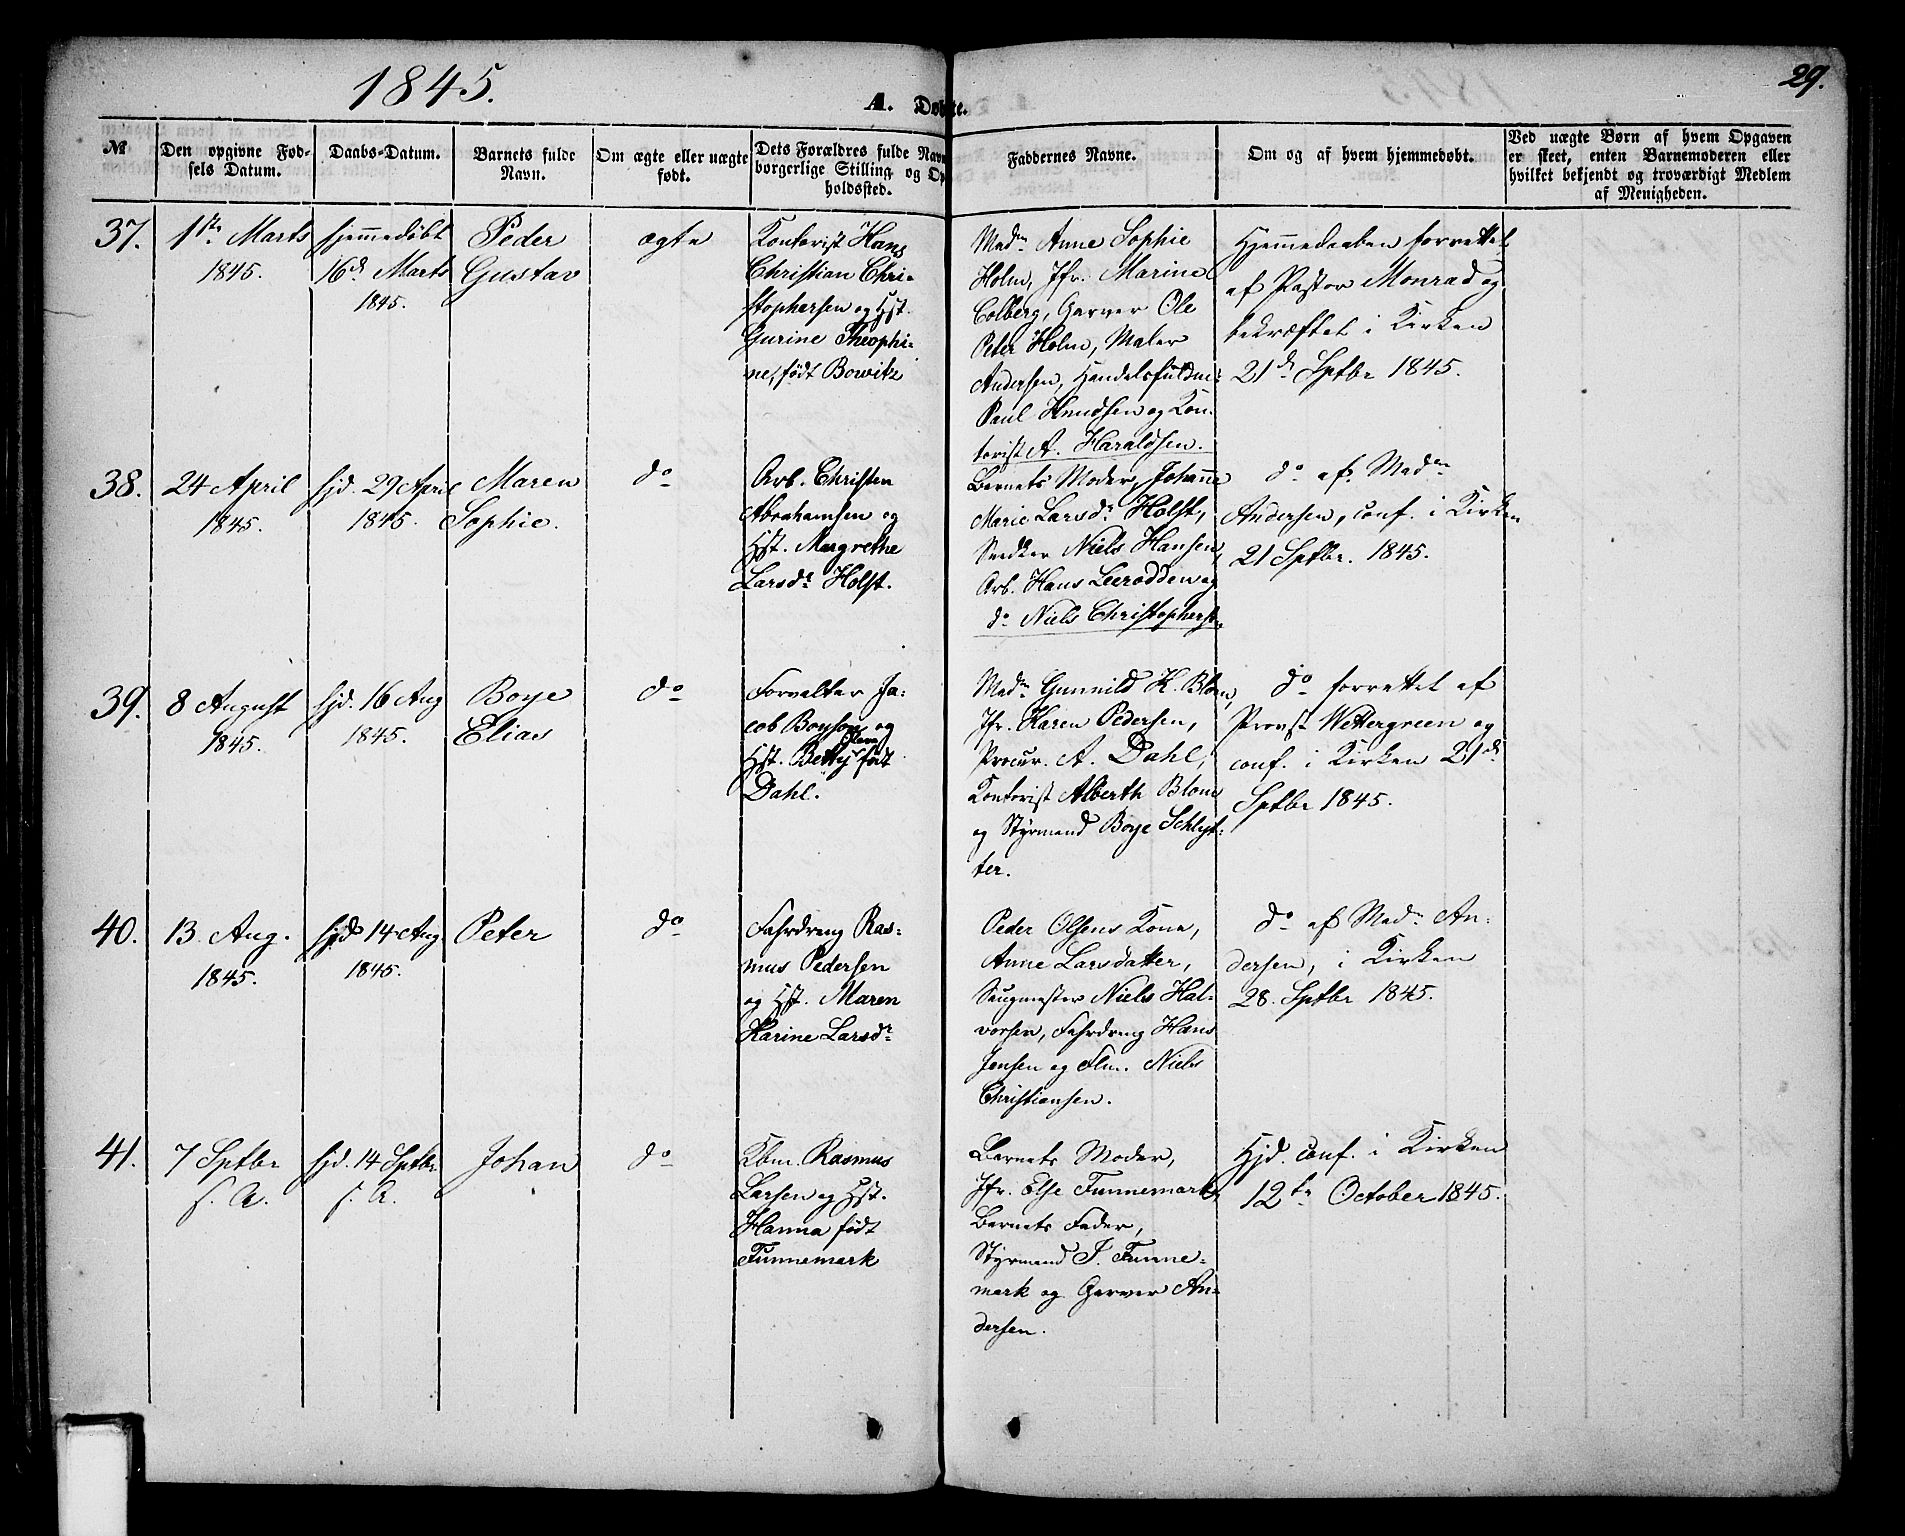 1845.
A. Døbte.
29.
№
Den opgivne Fød-
sels Datum.
Daabs-Datum.
Barnets fulde
Navn.
Om ægte eller uægte
født.
Dets Forældres fulde Navn
borgerlige Stilling og Op
holdssted.
Faddernes Navne.
Om og af hvem hjemmedøbt.
Ved uægte Børn af hvem Opgaven
er skeet, enten Barnemoderen eller
hvilket bekjendt og troværdigt Medlem
af Menigheden.
37.
1ste Marts
1845.
hjemmedøbt
16d Marts
1845.
Peder
Gustav
ægte
Kontorist Hans
Christian Chri-
stophersen og Hst.
Gurine Theophi-
ne, født Bowitz
Madm Anne Sophie
Holm, Jfr. Marine
Colberg, Garver Ole
Peter Holm, Maler
Andersen, Handelsfuldm:
Paul Knudsen og Kon-
torist A. Haraldsen.
Hjemmedaaben forrettet
af Pastor Monrad og
bekræftet i Kirken
21d Sptbr 1845.
38.
24 April
1845.
hjd. 29 April
1845.
Maren
Sophie.
do
Arb. Christen
Abrahamsen og
Hst. Margrethe
Larsdr Holst.
Barnets Moder, Johanne
Marie Larsdr Holst,
Snedker Niels Hansen,
Arb. Hans Leerodden og
do Niels Christophersen
do af Madm
Andersen, conf. i Kirken
21 Sptbr. 1845.
39.
8 August
1845.
hjd. 16 Aug
1845.
Boye
Elias
do
Forvalter Ja-
cob Boyson og
Hst. Betty født
Dahl.
Madm Gunnild K. Blom,
Jfr. Karen Pedersen,
Procur. A. Dahl,
Kontorist Alberth Blom
og Styrmand Boye Schlyt-
ter.
do forrettet af
Provst Wettergreen og
conf. i Kirken 21d
Sptbr 1845.
40.
13. Aug.
1845.
hjd 14 Aug.
1845.
Peter
do
Fahrdreng Ras-
mus Pedersen
og Hst. Maren
Karine Larsdr
Peder Olsens Kone,
Anne Larsdatter,
Saugmester Niels Hal-
vorsen, Fahrdreng Hans
Jensen og Flm. Niels
Christiansen.
do af Madm An-
dersen, i Kirken
28. Sptbr 1845.
41.
7 Sptbr
s. A.
hjd. 14 Sptbr.
s. A.
Johan
do
Kbm. Rasmus
Larsen og Hst.
Hanna født
Funnemark
Barnets Moder,
Jfr. Else Funnemark,
Barnets Fader,
Styrmand J. Funne-
mark og Garver An-
dersen.
Hjd. conf. i Kirken
12te October 1845.